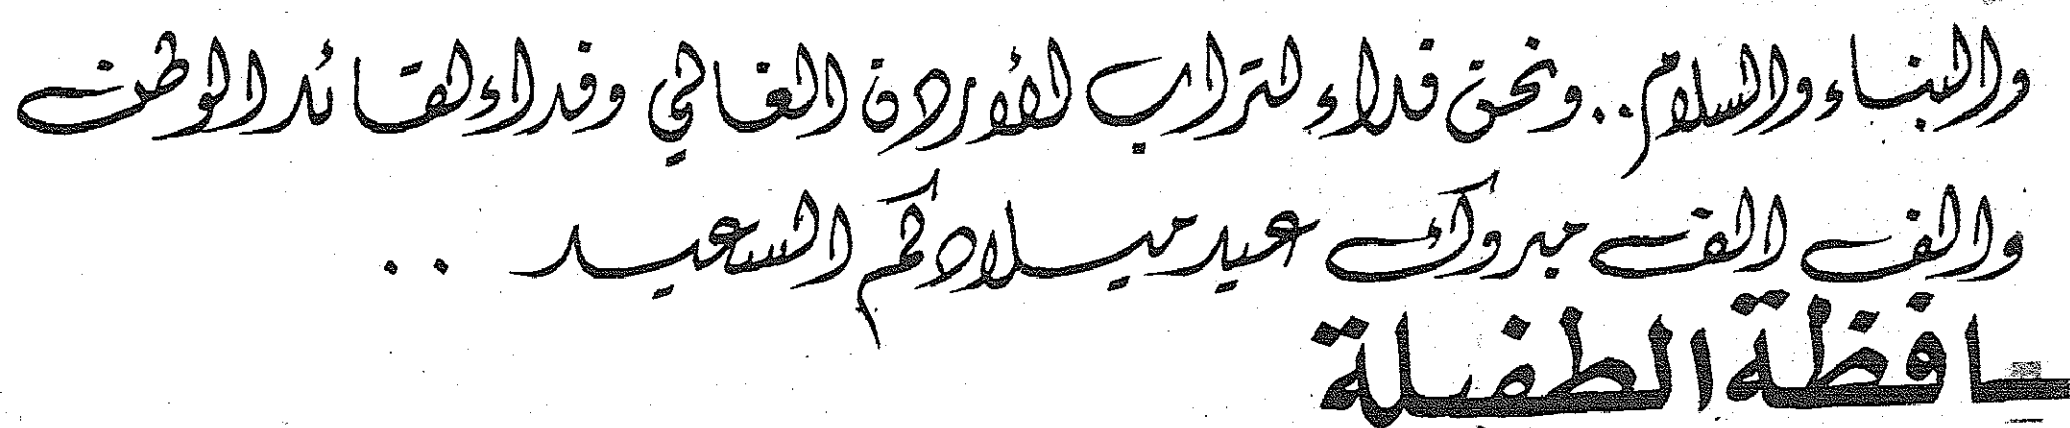 والبناء والسلام .. ونحن فداء لتراب الأردن الغالي وفداء لقائد الوطن
والف الف مبروك عيد ميلادكم السعيد ..
ـافظة الطفيلة